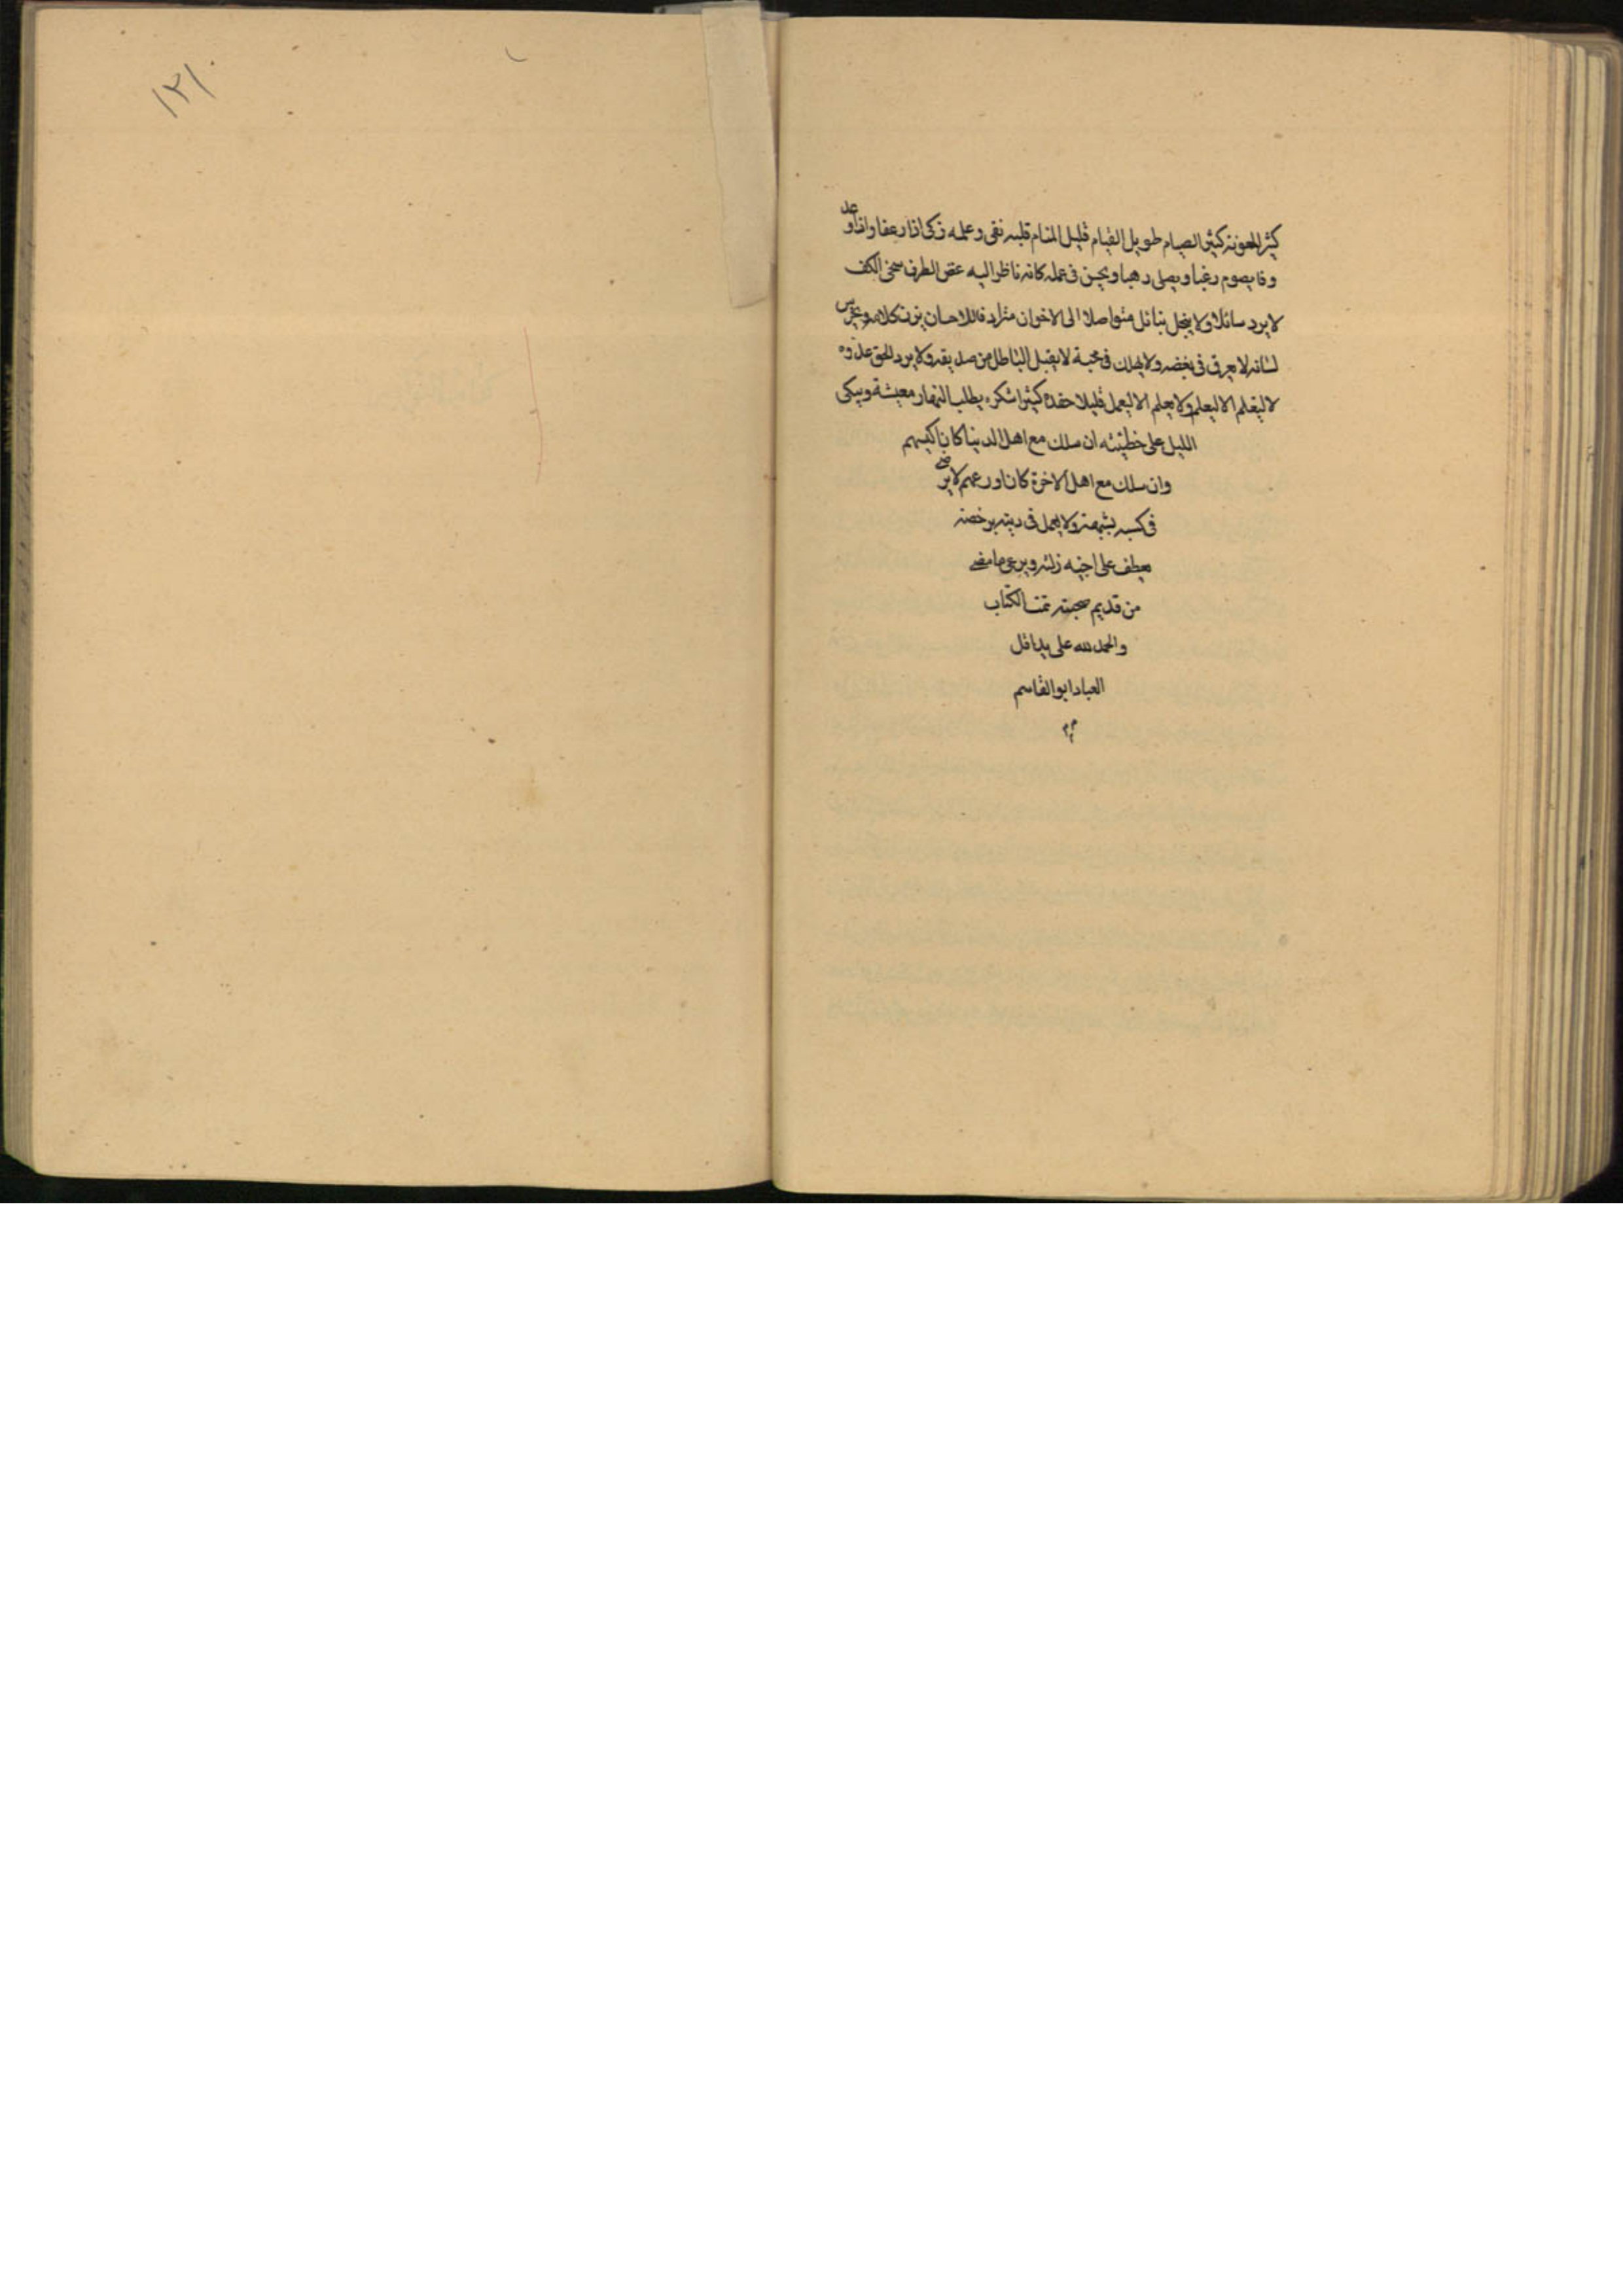 كثير المعونة كثير الصيام طويل القيام قليل المنام قلبه نقى وعمله زكى اذا رعفا واذا وعد
وفا يصوم رغبا ويصلى رهبا ويحسن فى عمله كانه ناظر اليه عفر الطرف سخى الكف
لا يرد سائلا ولا يبخل بنائل متواصلا الى الاخوان مترادفا للاحسان يزن كلامه ويخرس
لسانه لا يعرق فى بغضه ولا يهلك فى محبة لا يقبل الباطل من صديقه ولا يرد الحق عدوه
لا يتعلم الا ليعلم ولا يعلم الا ليعمل قليلا حقده كثيرا شكره يطلب النهار معيشة ويبكى
الليل على خطيئته ان سلك مع اهل الدينا كان اكيسهم
وان سلك مع اهل الاخرة كان اورعهم لا يرضى
فى كسبه بشبهة ولا يعمل فى دينه برخصة
يعطف على اخيه زلته ويرعى ما مضى
من قديم صحبته تمت الكتاب
والحمد لله على يد اقل
العباد ابو القاسم
١٢١